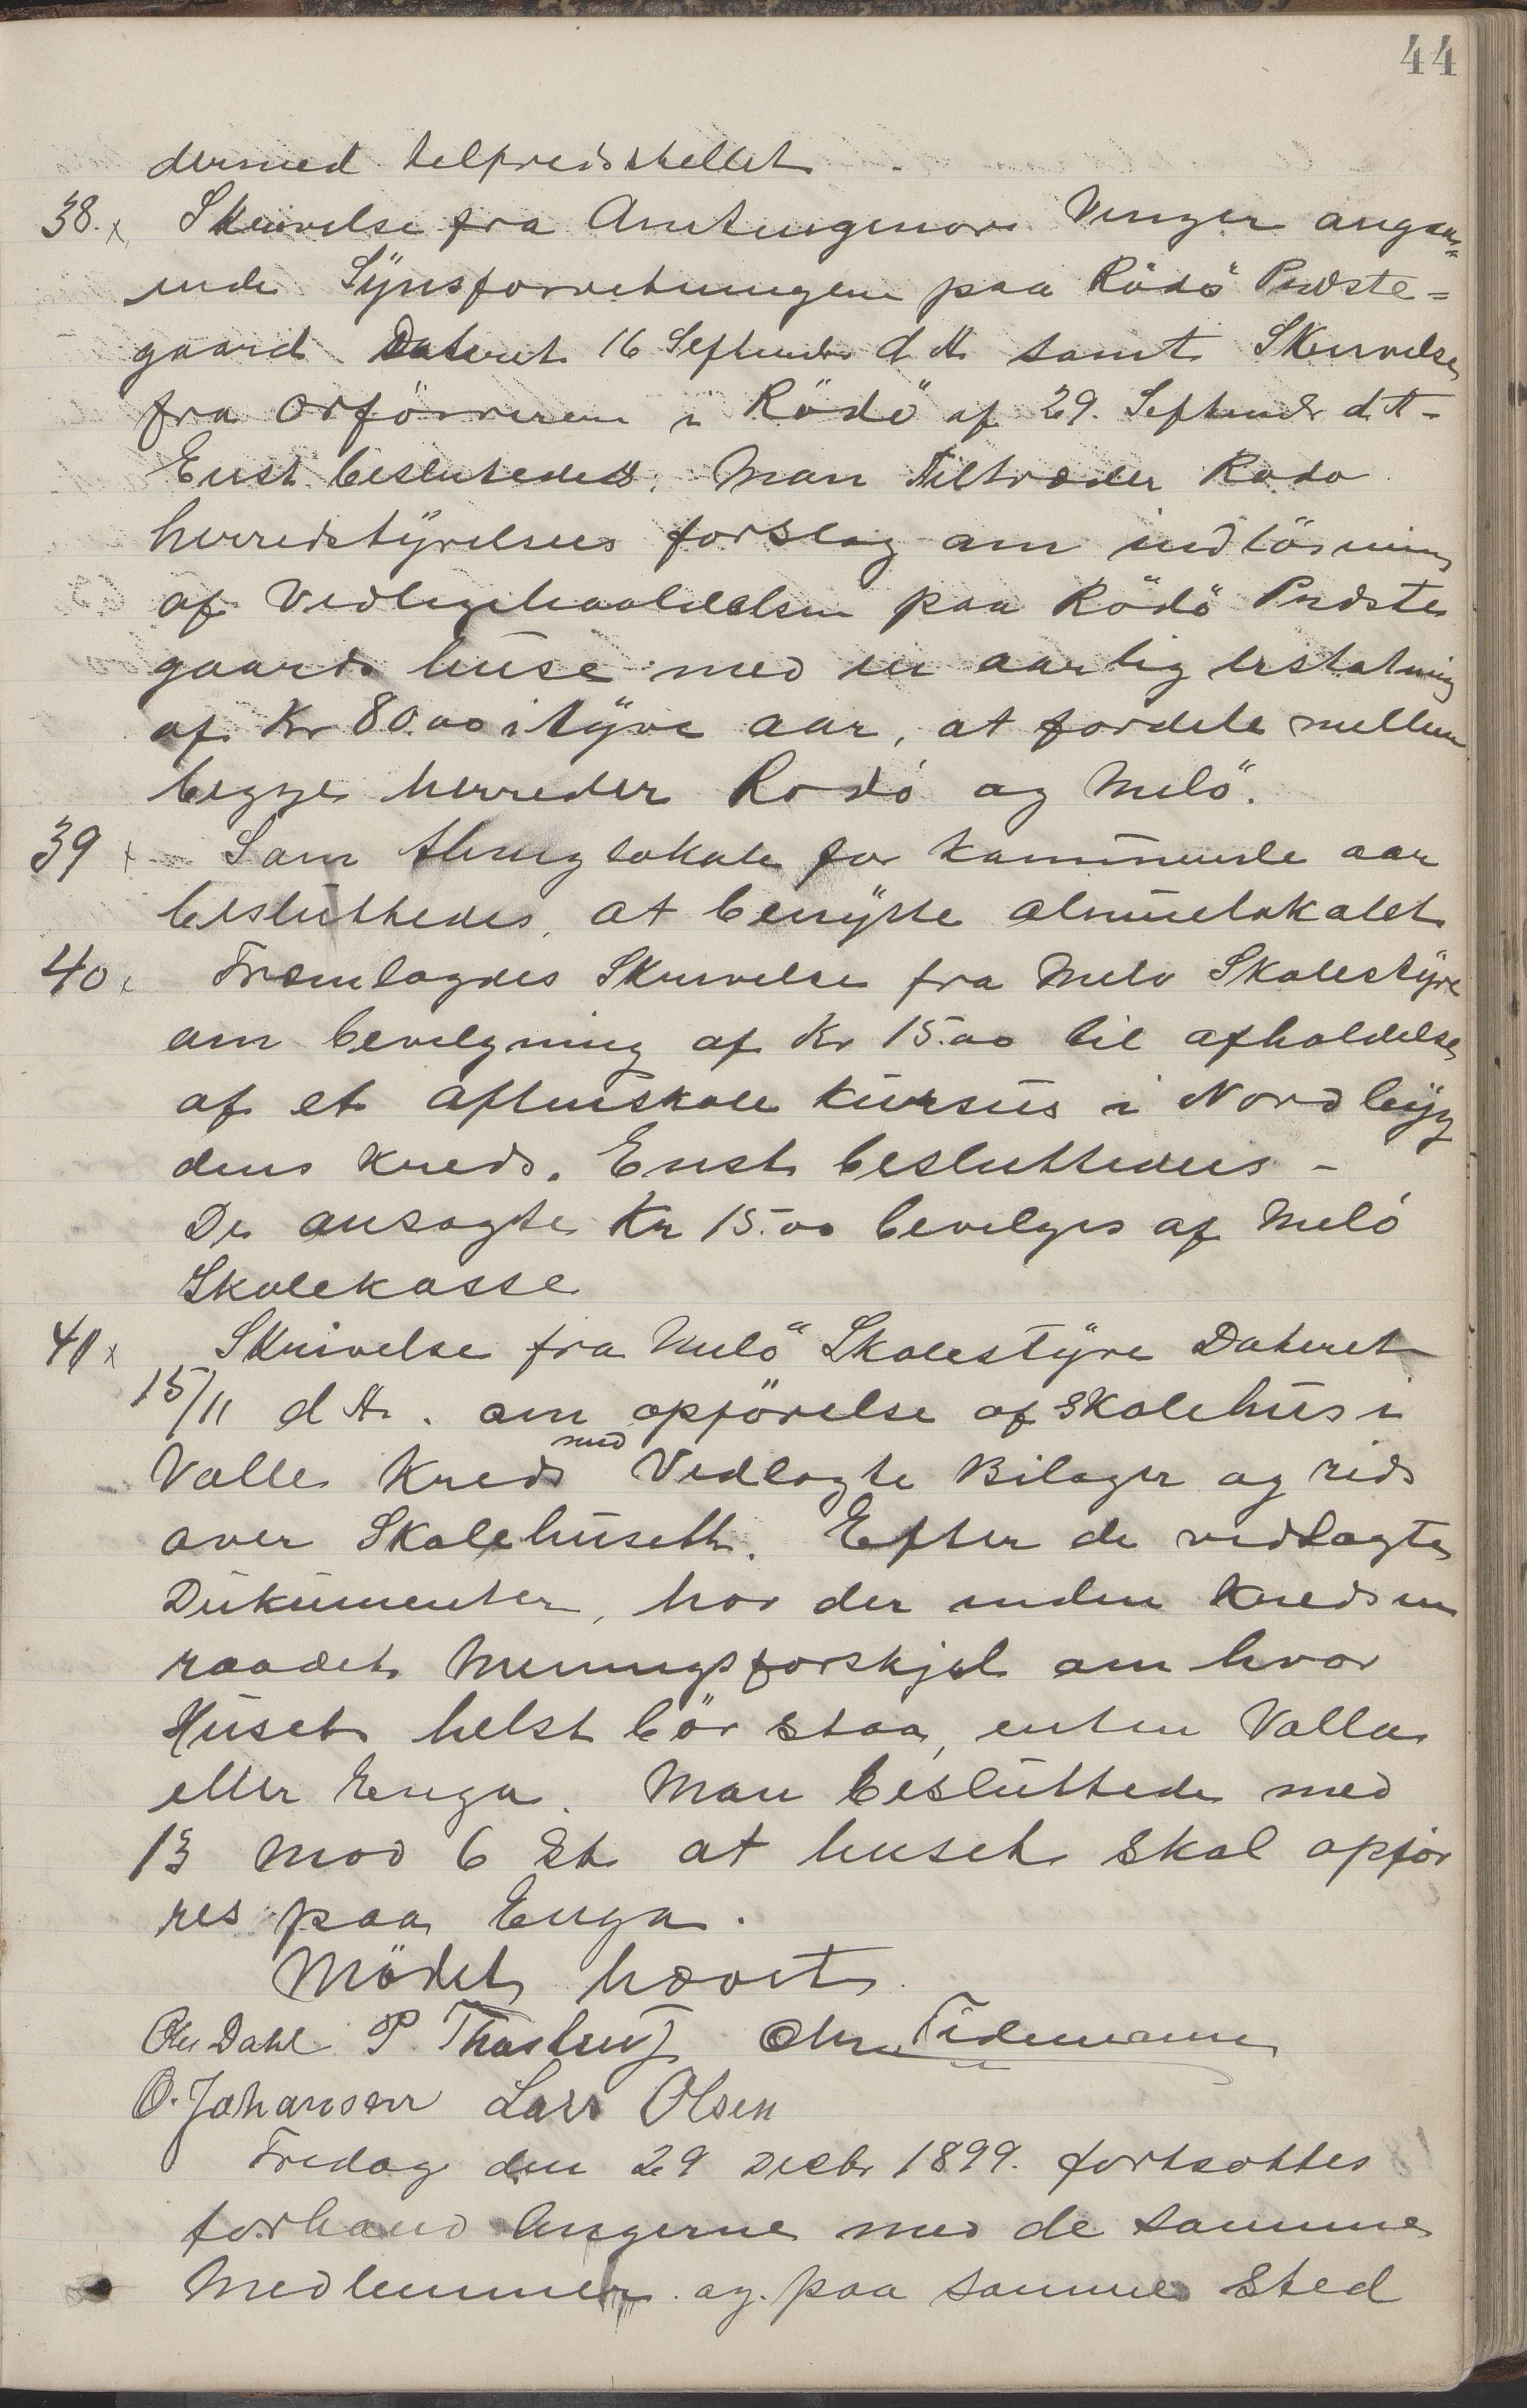 44
dermed tilfredsstellet.
38.x Skrivelse fra Amtingeniør Venger angaa„
ende Synsforretningen paa Rödö Præste=
gaard Dateret 16 September d A samt Skrivelse
fra Orförreren i Rödö af 29. Septembr d. A -
Enst besluttedes. Man tiltræder Rødø
herredstyrelses forslag om indlösning
af Vedligehooldelsen paa Rödö Præste
gaards huse med en aarlig erstatning
af Kr 80.00 i tyve aar, at fordele mellem
begge herreder Rodö og Melö.
39 x Som thinglokale for kommende aar
besluttedes, at benytte almuelokalet
40 x Fremlagdes Skrivelse fra Melø Skolestyre
om bevilgning af Kr 15.00 til afholdelse
af et aftenskole kursus i Nordbyg
dens kreds. Enst besluttedes -
De ansøgte Kr 15.00 bevilges af Melö
Skolekasse
41 x Skrivelse fra Melö Skolestyre Dateret
15/11 d A. om opförelse af skolehus i
Valle Kreds med Vedlagte Bilager og rids
over Skolehusett. Efter de vedlagte
Dukumenter, har der inden kredsen
raadet Meningsforskjel om hvor
Huset helst bör staa, enten Valla
eller Enga. Man besluttede med
13 mod 6 St. at huset skal opför
res paa Enga.
Mödet hævet.
Ole Dahl P. Thostrup Chr. Tidemann
O. Johansen Lars Olsen
Fredag den 29 Decbr 1899. fortsattes
forhandlingerne med de samme
Medlemmer og paa samme Sted